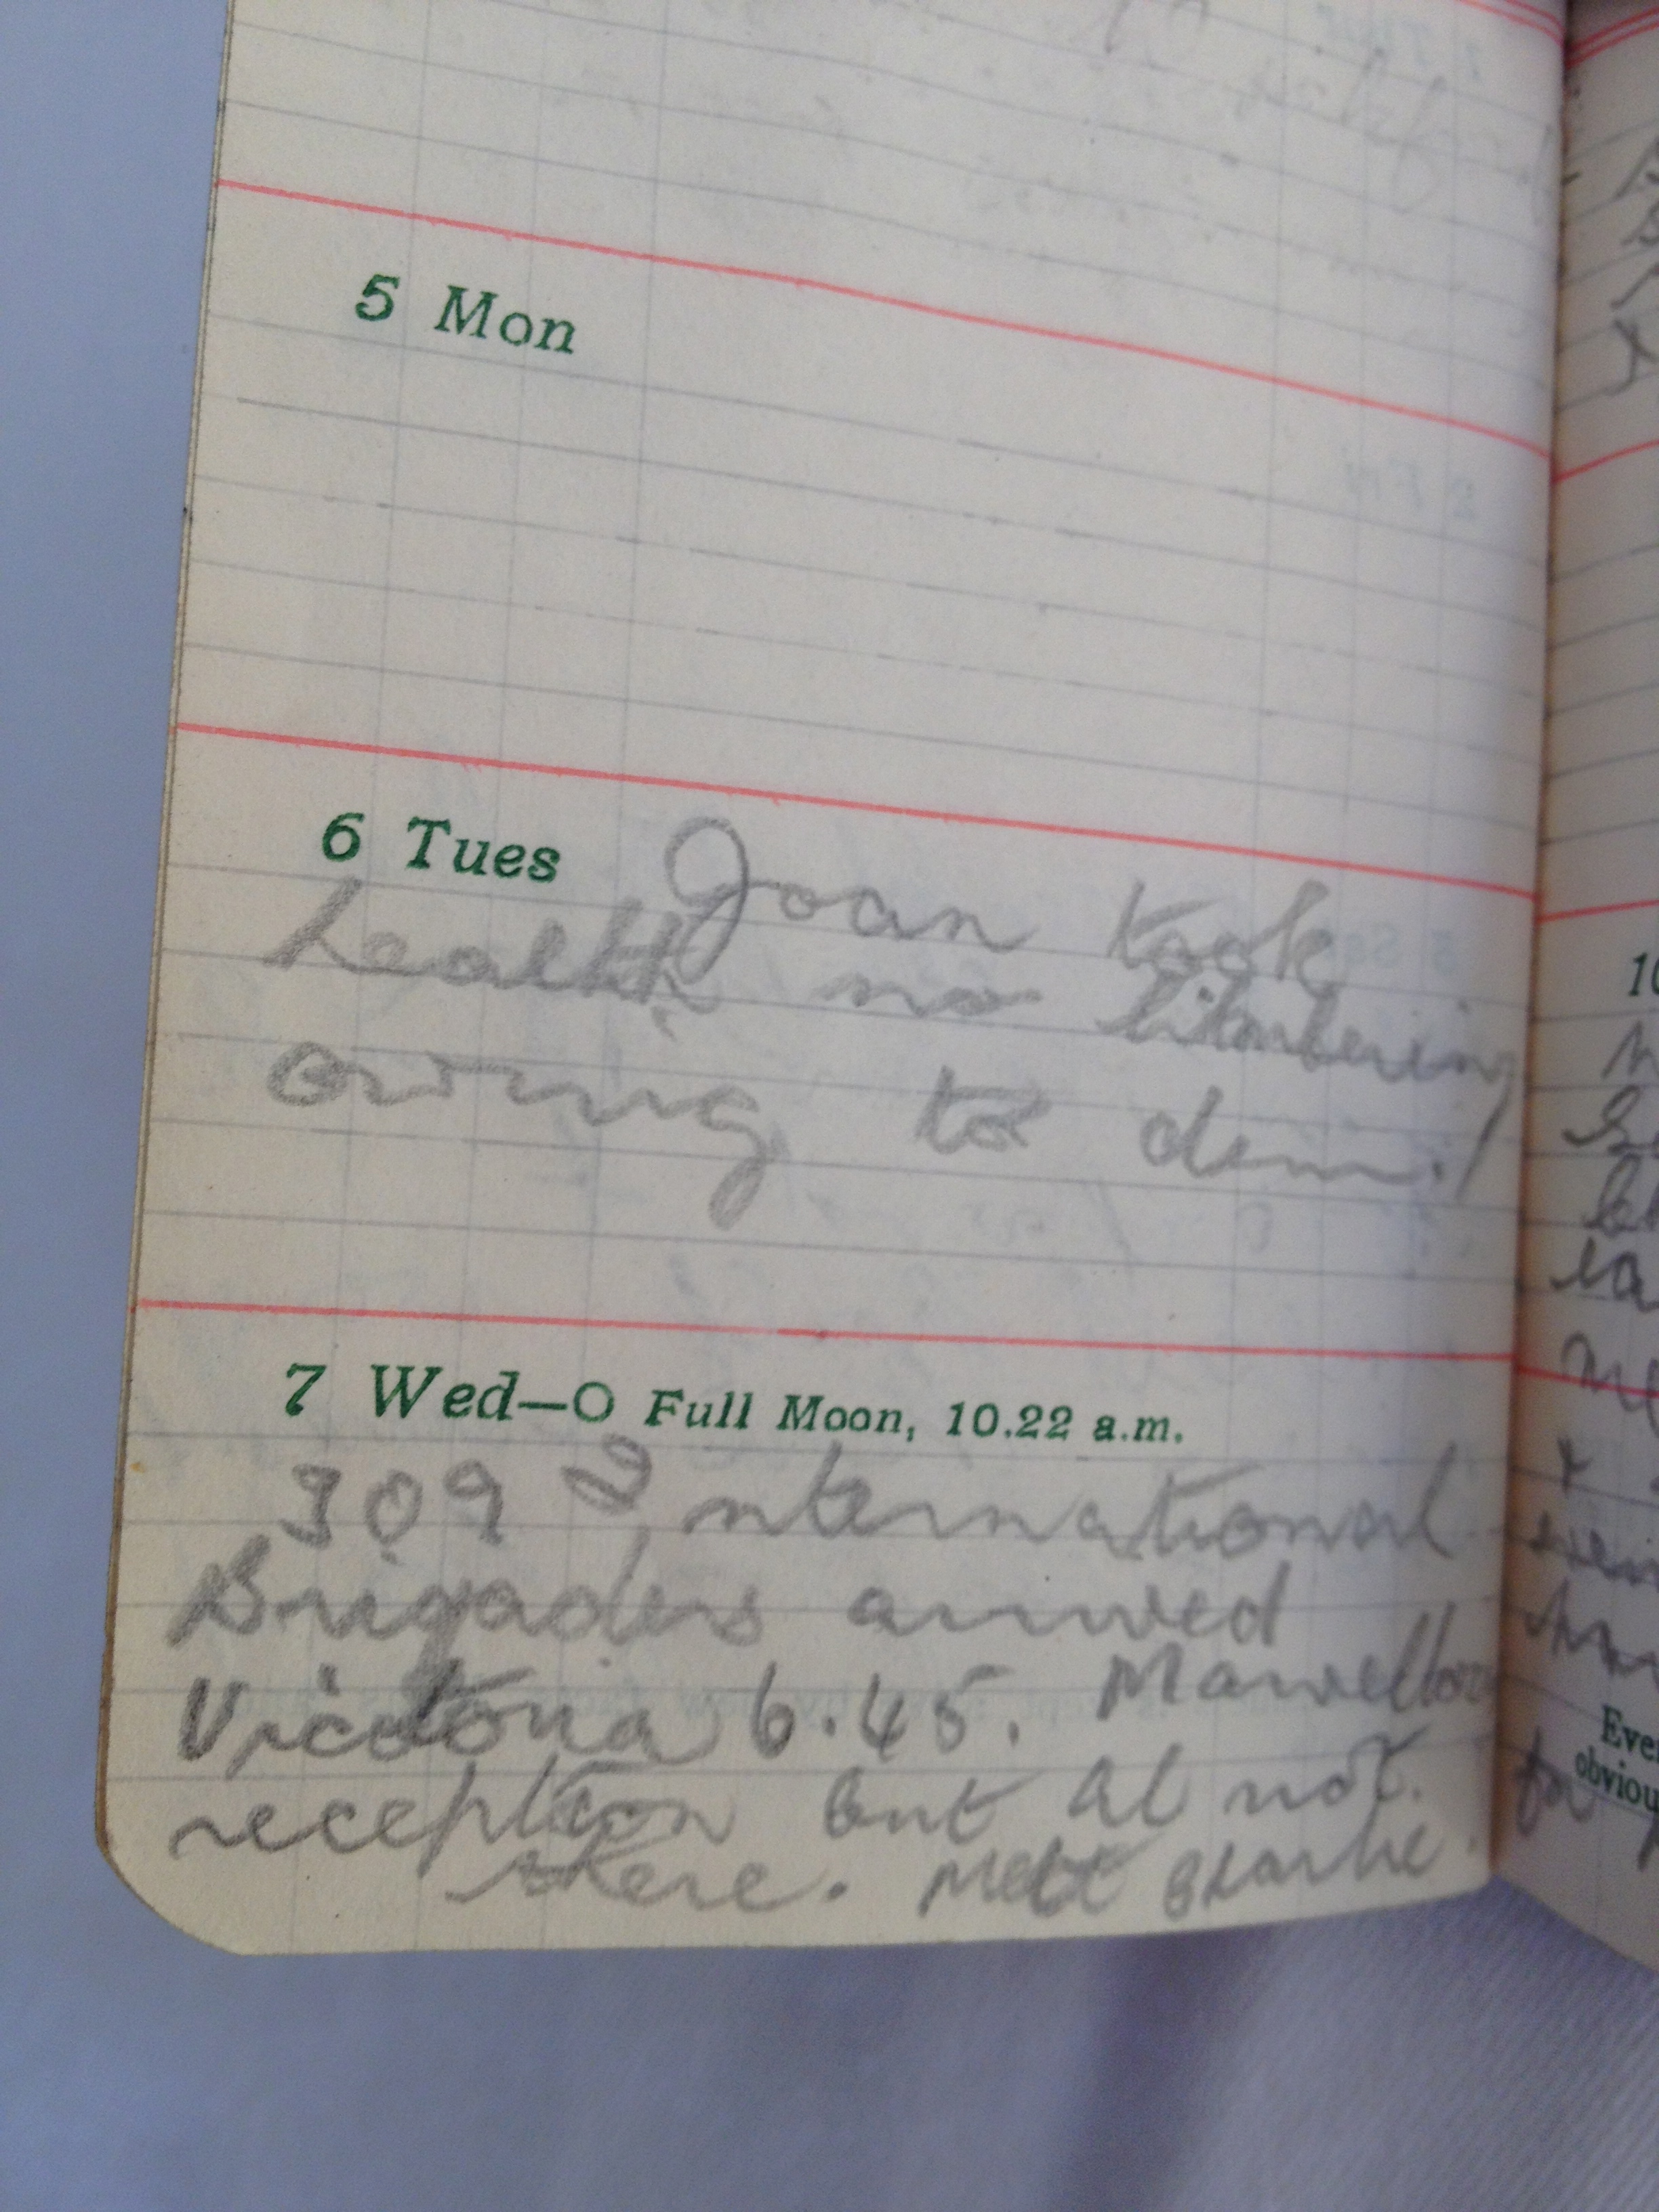 5 Mon
6 Tues Joan took
health no limbering
owing to dem.!
7 Wed—O Full Moon, 10.22 a.m.
309 International
Brigaders arrived
Victoria 6.45. Marvellous
reception but Al not
there. Mett
10
Eve
obviou